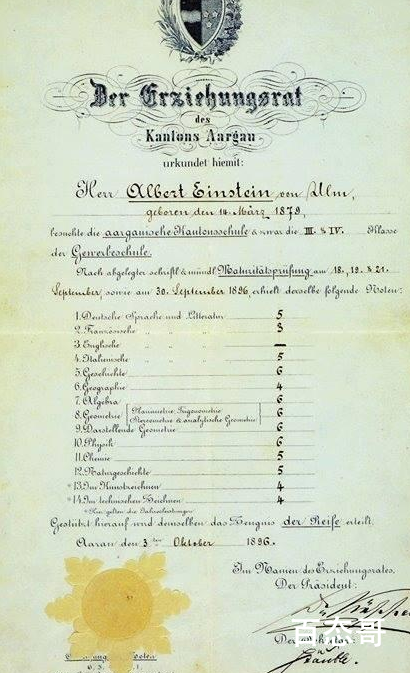 Der Erziehungsrat
des
Kantons Aargau
urkundet hiemit:
Herr Albert Einstein von Ulm,
geboren den 14. März 1879,
besuchte die aargauische Kantonsschule & zwar die III. & IV. Klasse
der Gewerbeschule.
Nach abgelegter schriftl. & mündl. Maturitätsprüfung am 18., 19. & 21.
September, sowie am 30. September 1896, erhielt derselbe folgende Noten:
1. Deutsche Sprache und Litteratur 5
2. Französische " " " 3
3. Englische " " " —
4. Italienische " " " 5
5. Geschichte 6
6. Geographie 4
7. Algebra 6
8. Geometrie (Planimetrie, Trigonometrie 6
Stereometrie & analytische Geometrie)
9. Darstellende Geometrie 6
10. Physik 6
11. Chemie 5
12. Naturgeschichte 5
*13. Im Kunstzeichnen 4
*14. Im technischen Zeichnen 4
* Hier gelten die Jahresleistungen.
Gestützt hierauf wird demselben das Zeugnis der Reife erteilt.
Aarau den 3ten Oktober 1896.
Im Namen des Erziehungsrates,
Der Präsident:
百杰哥